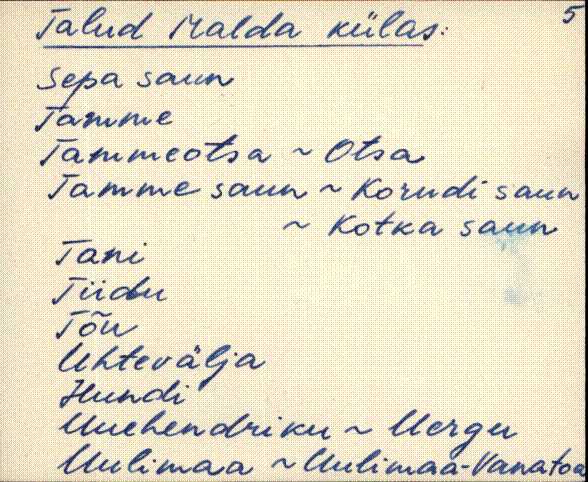 5
Talud Malda külas:
Sepa saun
Tamme
Tammeotsa ~ Otsa
Tamme saun ~ Korudi saun
~ Kotka saun
Tani
Tiidu
Tõu
Uhtevälja
Hundi
Uuehendriku ~ Uergu
Uulimaa ~ Uulimaa-Vanatoa